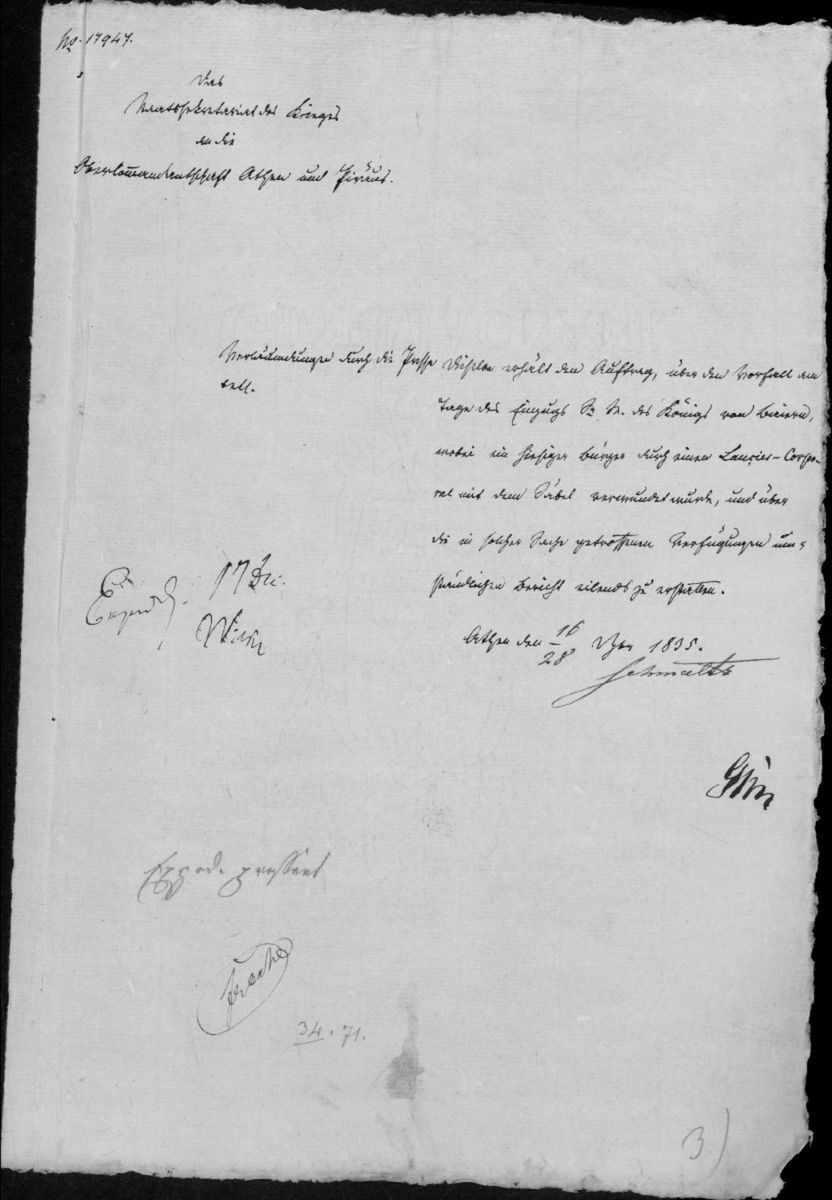 No. 17947.
Das
Staatssekretariat des Krieges
an die
Oberkommandantschaft Athen und Piräus.
Verläumdungen durch die Presse
betf.
Dieselbe erhält den Auftrag, über den Vorfall am
Tage des Einzugs Sr. M. des Königs von Baiern,
wobei ein hiesiger Bürger durch einen Lancier-Corpo-
ral mit dem Säbel verwundet wurde, und über
die in solcher Sache getroffenen Verfügungen um-
ständlichen Bericht eilends zu erstatten.
Athen den 16/28 Xber 1835.
Schmaltz
Exped. pressant
34. 71.
3)